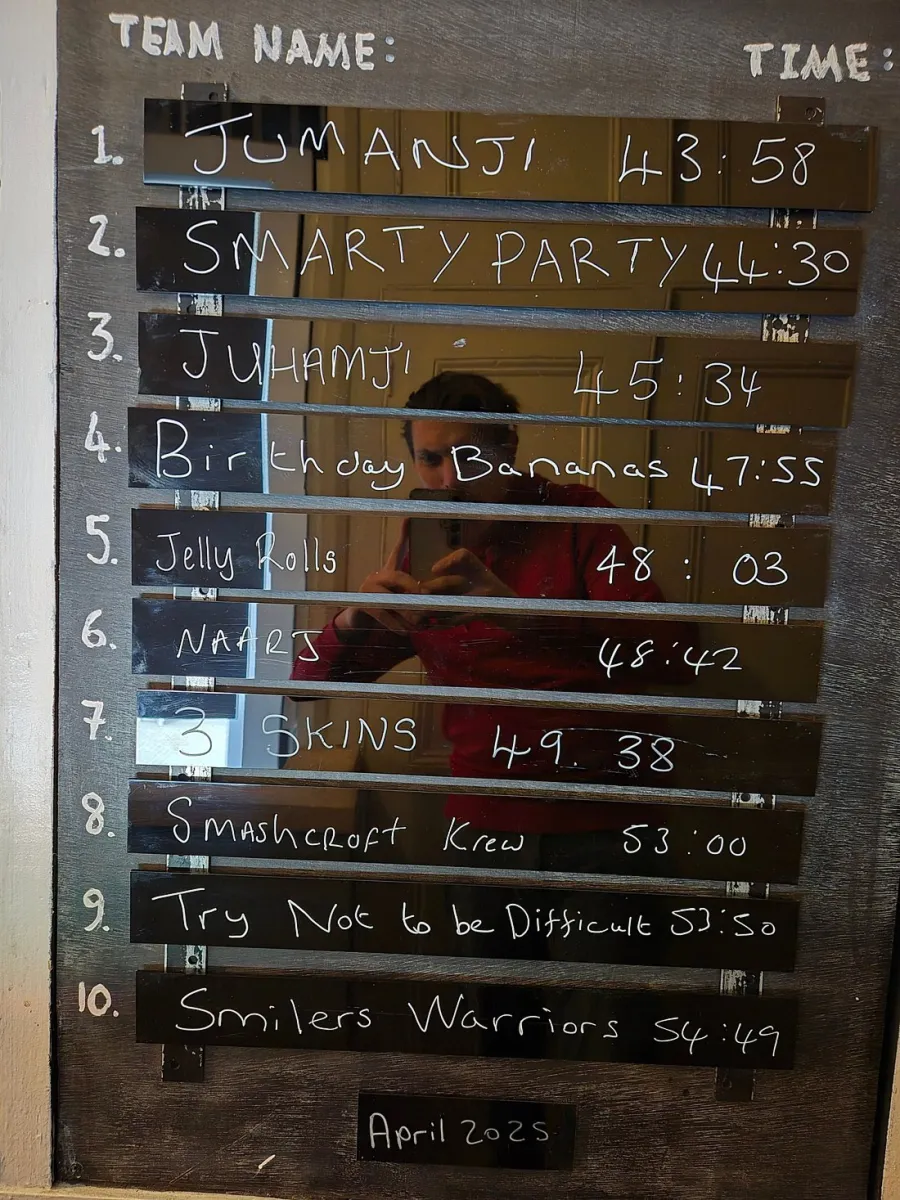 TEAM NAME: TIME:
1. JUMANJI 43:58
2. SMARTY PARTY 44:30
3. JUHAMJI 45:34
4. Birthday Bananas 47:55
5. Jelly Rolls 48:03
6. NAARJ 48:42
7. 3 SKINS 49.38
8. SMASHCROFT Krew 53:00
9. Try Not to be Difficult 53:50
10. Smilers Warriors 54:49
April 2025